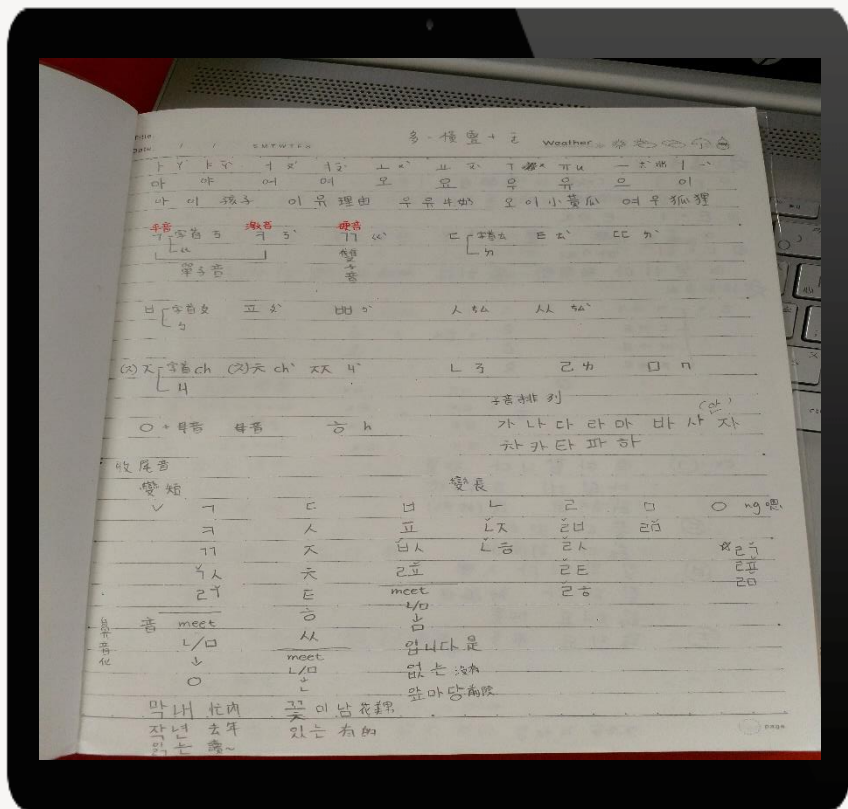 Date / / S M T W T F S 多一橫豎+ㄧ Weather
ㅏ ㅑ ㅓ ㅕ ㅗ ㅛ ㅜ ㅠ u ㅡ ㅣ
아 야 어 여 오 요 우 유 으 이
아이 孩子 이유 理由 우유 牛奶 오이 小黃瓜 여우 狐狸
平音 激音 硬音
ㄱ 字首ㄎ ㅋ ㄎˋ ㄲ ㄍˋ ㄷ 字首ㄊ ㅌ ㄊˋ ㄸ ㄉˋ
ㄍ ㄉ
單子音 雙子音
ㅂ 字首ㄆ ㅍ ㄆˋ ㅃ ㄅˋ ㅅ ㄙ ㅆ ㄙˋ
ㄅ
(ㅈ) ㅈ 字首ch (ㅊ) ㅊ chˋ ㅉ ㄐˋ ㄴ ㄋ ㄹ ㄌ ㅁ ㄇ
ㄐ
子音排列
(안)
ㅇ+母音 母音 ㅎ h 가 나 다 라 마 바 사 자
차 카 타 파 하
收尾音
變短 變長
ㄱ ㄷ ㅂ ㄴ ㄹ ㅁ ㅇ ng
ㅋ ㅅ ㅍ ㄵ ㄼ ㄻ
ㄲ ㅈ ㅄ ㄶ ㄽ ㄺ
ㄳ ㅊ ㄿ ㄾ ㄿ
ㄺ ㅌ meet ㅀ ㄻ
鼻音化 音 meet ㅎ ㄴ/ㅁ
ㄴ/ㅁ ㅆ ↓ ㅁ
↓ meet 입니다 是
ㅇ ㄴ/ㅁ 없는 沒有
↓ ㄴ 앞마당 前院
막내 忙內 꽃미남 花美男
작년 去年 있는 有的
읽는 讀~
page